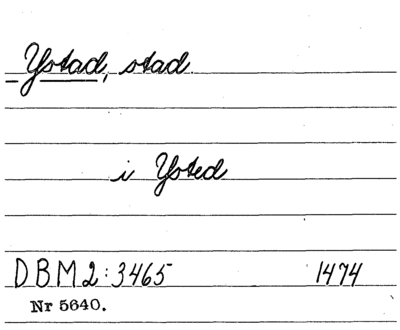 Ystad, stad.
i Ysted
DBM2:3465 1474
Nr 5640.